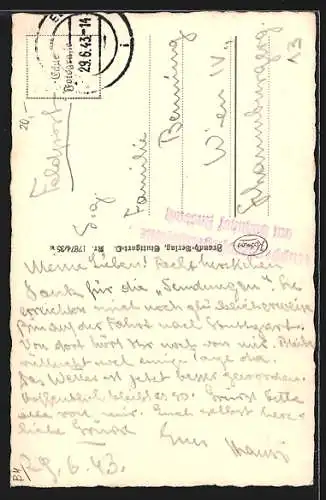 29.6.43.-14
Echte
Fotografie
20,-
Feldpost
13
Familie
Benning
Wien IV
Schaumburgerg.
Brandt-Verlag, Stuttgart-O. Nr.
Meine Lieben! Recht herzlichen
Dank für die „Sendungen". Sie
erreichten mich noch
auf der Fahrt nach Stuttgart.
Von dort hört Ihr noch von mir. Bleibe
vielleicht einige Tage da.
Das Wetter ist jetzt besser geworden.
Hoffentlich bleibt es so. Grüsst bitte
alle von mir. Euch selbst herz-
liche Grüsse Euer Hansi
29.6.43.